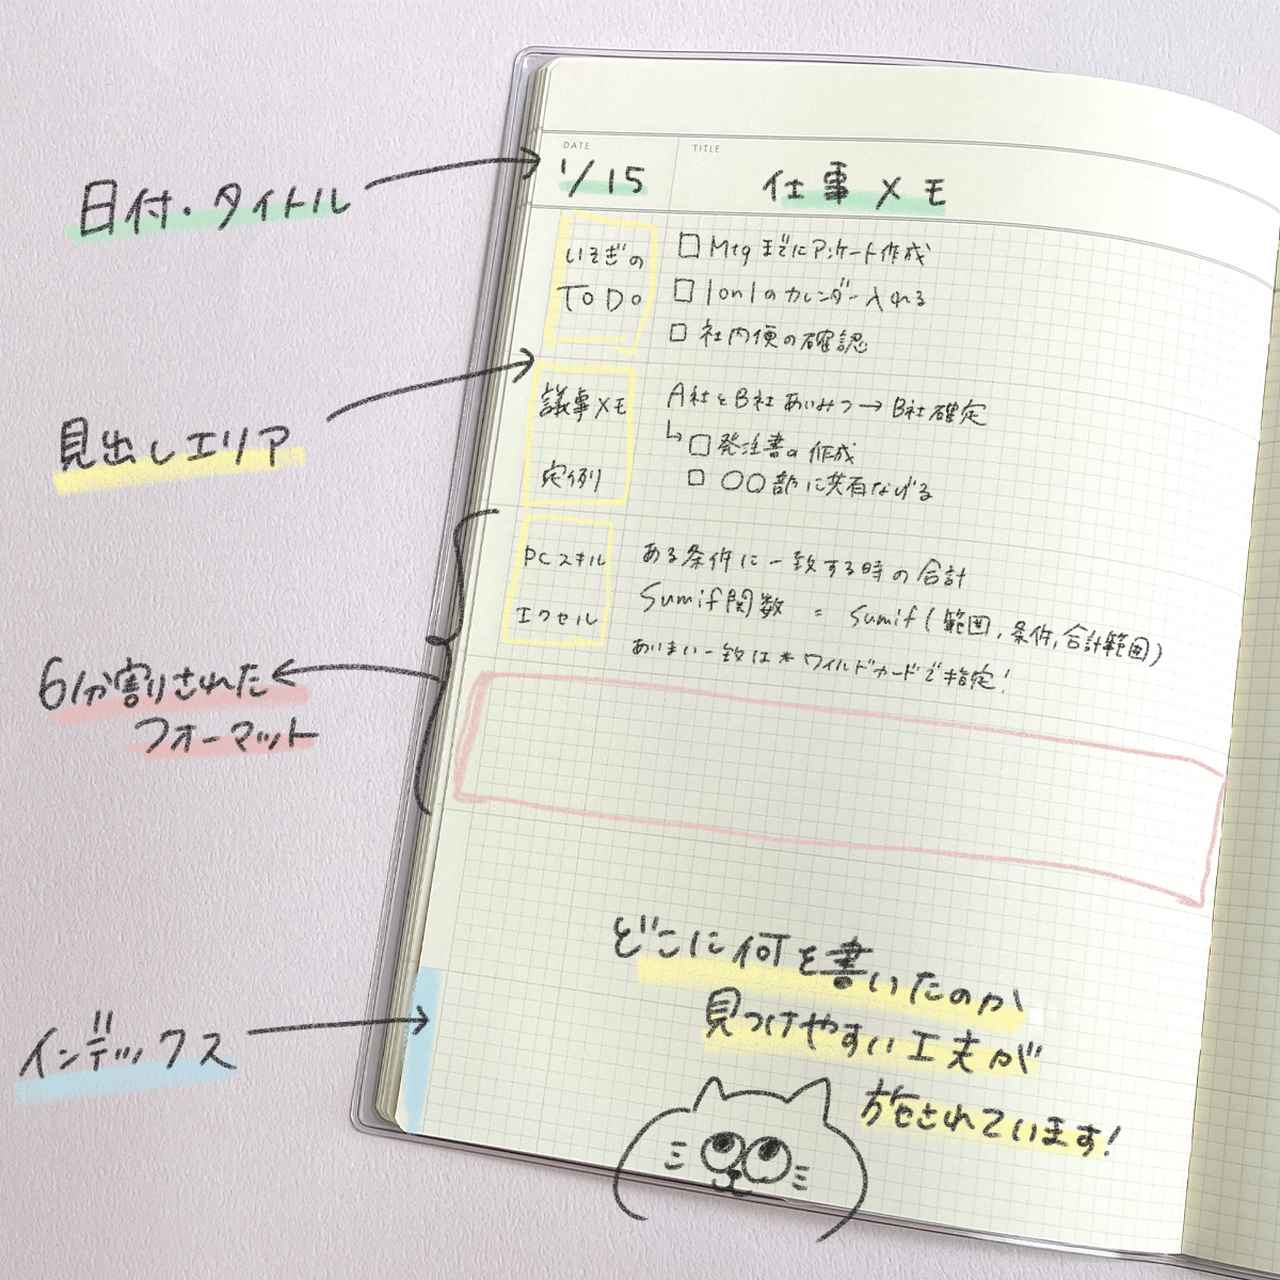 DATE
TITLE
1/15
仕事メモ
日付・タイトル
いそぎの
ToDo
□ Mtgまでにアンケート作成
□ 1on1のカレンダー入れる
□ 社内便の確認
見出しエリア
議事メモ
定例
A社とB社あいみつ→B社確定
↳□発注書の作成
□ 〇〇部に共有なげる
PCスキル
エクセル
ある条件に一致する時の合計
Sumif関数 = Sumif(範囲,条件,合計範囲)
あいまい一致は*ワイルドカードで指定!
6分割された
フォーマット
インデックス
どこに何を書いたのか
見つけやすい工夫が
施されています!